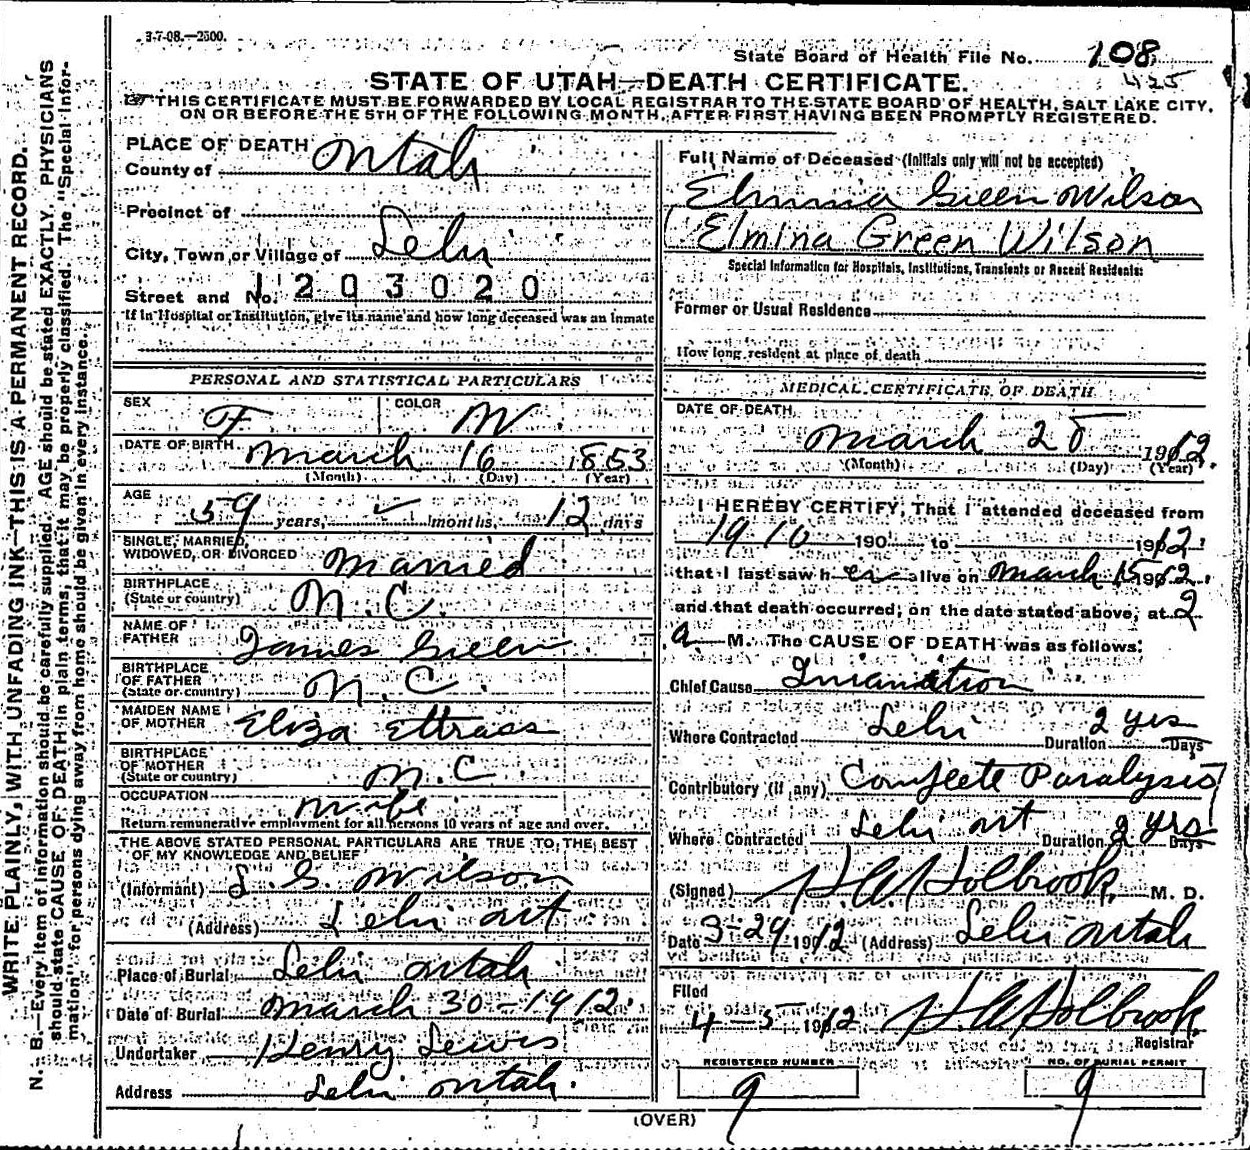 3-7-08.—2500.
State Board of Health File No. 108
425
STATE OF UTAH—DEATH CERTIFICATE.
THIS CERTIFICATE MUST BE FORWARDED BY LOCAL REGISTRAR TO THE STATE BOARD OF HEALTH, SALT LAKE CITY,
ON OR BEFORE THE 5TH OF THE FOLLOWING MONTH, AFTER FIRST HAVING BEEN PROMPTLY REGISTERED.
WRITE PLAINLY, WITH UNFADING INK—THIS IS A PERMANENT RECORD.
N. B.—Every item of information should be carefully supplied. AGE should be stated EXACTLY. PHYSICIANS
should state CAUSE OF DEATH in plain terms, that it may be properly classified. The "Special Infor-
mation" for persons dying away from home should be given in every instance.
PLACE OF DEATH
County of Utah
Precinct of
City, Town or Village of Lehi
Street and No. 1203020
If in Hospital or Institution, give its name and how long deceased was an inmate
PERSONAL AND STATISTICAL PARTICULARS
SEX F COLOR W
DATE OF BIRTH March 16 1853
(Month) (Day) (Year)
AGE 59 years, months, 12 days
SINGLE, MARRIED,
WIDOWED, OR DIVORCED Married
BIRTHPLACE
(State or country) N.C.
NAME OF
FATHER James Green
BIRTHPLACE
OF FATHER
(State or country) N.C.
MAIDEN NAME
OF MOTHER Eliza
BIRTHPLACE
OF MOTHER
(State or country) N.C
OCCUPATION Wife
Return remunerative employment for all persons 10 years of age and over.
THE ABOVE STATED PERSONAL PARTICULARS ARE TRUE TO THE BEST
OF MY KNOWLEDGE AND BELIEF
(Informant) L. G. Wilson
(Address) Lehi Ut
Place of Burial Lehi Utah
Date of Burial March 30-1912.
Undertaker Henry Lewis
Address Lehi Utah.
Full Name of Deceased (Initials only will not be accepted)
Elmina Green Wilson
Elmina Green Wilson
Special Information for Hospitals, Institutions, Transients or Recent Residents:
Former or Usual Residence
How long resident at place of death
MEDICAL CERTIFICATE OF DEATH
DATE OF DEARTH
March 28 1912.
(Month) (Day) (Year)
I HEREBY CERTIFY, That I attended deceased from
1910 190 to 1912.
that I last saw her alive on March 15 1912.
and that death occurred, on the date stated above, at 2
a. M. The CAUSE OF DEATH was as follows:
Chief Cause Inanition
Where Contracted Lehi Duration 2 yrs Days
Contributory (if any) Complete Paralysis
Where Contracted Lehi Ut Duration 2 yrs Days
(Signed) H.A. Holbrook, M. D.
Date 3-29 1912 (Address) Lehi Utah
Filed
4-5-1912 H.A. Holbrook
Registrar
REGISTERED NUMBER NO. OF BURIAL PERMIT
9 9
(OVER)